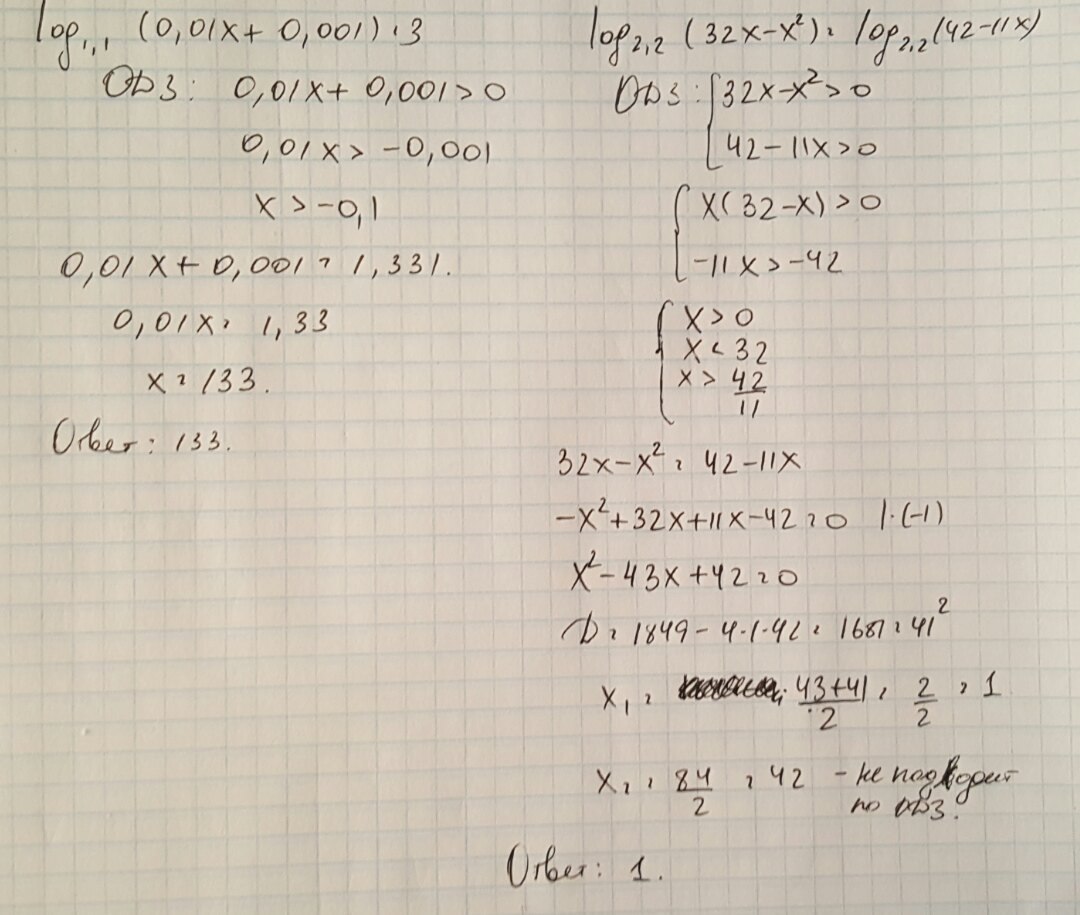 log₁,₁ (0,01x + 0,001) = 3
ОДЗ: 0,01x + 0,001 > 0
0,01x > -0,001
x > -0,1
0,01x + 0,001 = 1,331.
0,01x = 1,33
x = 133.
Ответ: 133.
log₂,₂ (32x-x²) = log₂,₂ (42-11x)
ОДЗ: { 32x-x² > 0
42-11x > 0
{ x(32-x) > 0
-11x > -42
{ x > 0
x < 32
x > 42/11
32x-x² = 42-11x
-x²+32x+11x-42 = 0 |·(-1)
x²-43x+42 = 0
D = 1849-4·1·42 = 1681 = 41²
x₁ = 43+41/2 = 2/2 = 1
x₂ = 84/2 = 42 - не подходит
по ОДЗ.
Ответ: 1.